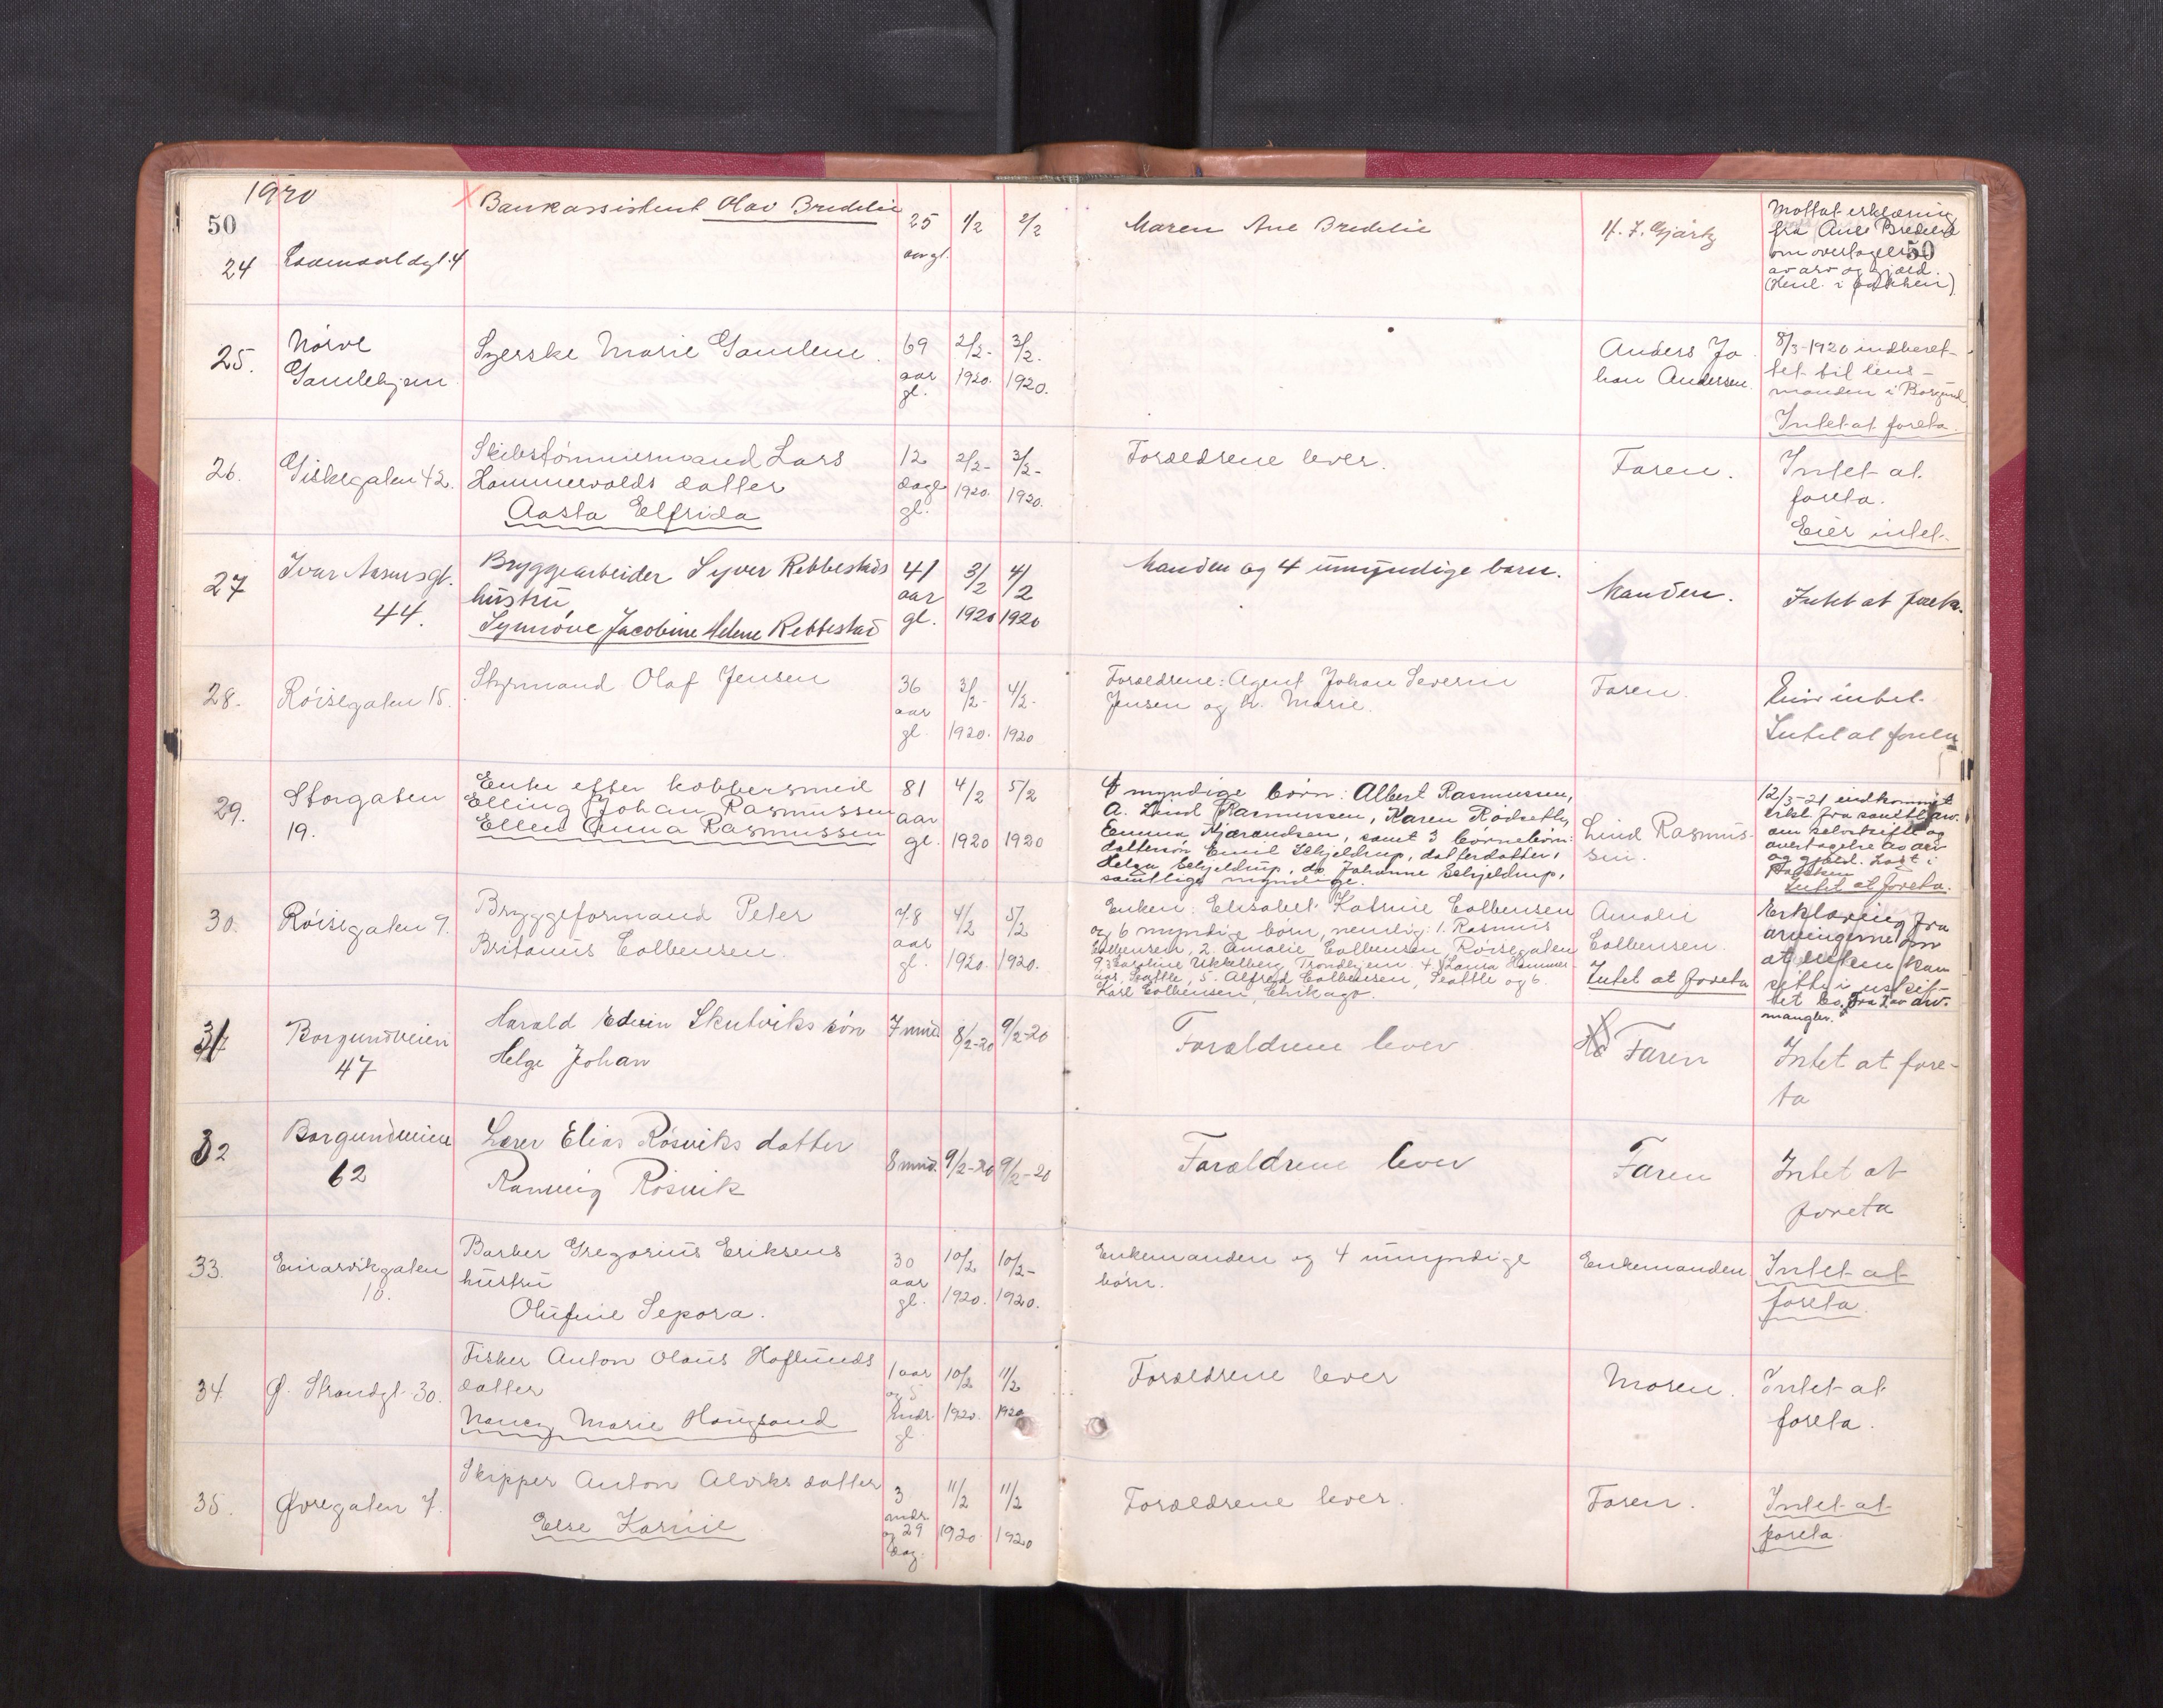 1920
50
24
Bankassistent Olav Bredelie
25
aar gl.
1/2
2/2
Maren Ane Bredelie
Mottat erklæring
fra Ane Bredelie
om overtagelse
50
av arv og gjæld.
25.
Nørve
Gamlehjem
Syerske Marie Gamlem.
69
aar
gl.
2/2-
1920.
3/2-
1920.
Anders Jo
han Andersen.
8/3-1920 indberet-
tet til lens-
manden i Borgund
Intet at foreta.
26.
Giskegaten 42.
Skibstømmermand Lars
Hammervolds datter
Aasta Elfrida
12
dage
gl.
2/2-
1920.
3/2-
1920.
Forældrene lever.
Faren.
Intet at
foreta.
Eier intet.
27
Ivar Aasensgt.
44.
Bryggearbeider Syver Rebbestads
hustru
Synnøve Jacobine Helene Rebbestad
41
aar
gl.
3/2
1920
4/2
1920
Manden og 4 umyndige barn.
Manden.
Intet at foreta.
28.
Røisegaten 15.
Styrmand Olaf Jensen
36
aar
gl.
3/2-
1920.
4/2-
1920
Forældrene: Agent Johan Severin
Jensen og h. Marie.
Faren.
Eier intet.
Intet at foreta
29.
Storgaten
19.
Enke efter kobbersmed
Elling Johan Rasmussen
Ellen Anna Rasmussen
81
aar
gl.
4/2
1920
5/2
1920
4 myndige børn: Albert Rasmussen,
A. Lind Rasmussen, Karen Rødseth,
Emma Kjærandsen, samt 3 børnebørn:
dattersøn Emil Schjeldrup, datterdatter,
Helga Schjeldrup, do Johanne Schjeldrup,
samtlige myndige.
Lind Rasmus-
sen.
12/3-21 indkommet
erkl. fra samtl. arv.
om selvskifte og
overtagelse av arv
og gjæld. Lagt i
Pakken
Intet at foreta.
30.
Røisegaten 9.
Bryggeformand Peter
Britanus Colbensen
78
aar
gl.
4/2
1920.
5/2
1920.
Enken: Elisabet Katrine Colbensen
og 6 myndige børn, nemlig: 1. Rasmus
Colbensen, 2. Amalie Colbensen Røisegaten
9, 3. Karoline Ukkelberg Trondhjem. 4. Laura Hammer-
aas, Seattle, 5. Alfred Colbensen, Seattle og 6.
Karl Colbensen, Chikago.
Amalie
Colbensen.
Intet at foreta
Erklæring fra
arvingerne om
at enken kan
sitte i uskif-
tet bo. Fra 2 av arv.
mangler.
31
Borgundveien
47
Harald Edvin Skutviks søn
Helge Johan
7 mnd
8/2-20
9/2-20
Forældrene lever
Faren
Intet at fore-
ta
32
Borgundveien
62
Lærer Elias Røsviks datter
Ranveig Røsvik
8 mnd.
9/2-20
9/2-20
Forældrene lever
Faren
Intet at
foreta
33.
Einarvikgaten
10.
Barber Gregorius Eriksens
hustru
Olufine Sepora.
30
aar
gl.
10/2
1920.
10/2-
1920.
Enkemanden og 4 umyndige
børn.
Enkemanden
Intet at
foreta.
34.
Ø. Strandgt. 30.
Fisker Anton Olaus Haflunds
datter
Nancy Marie Haugsand
1 aar
og 5
mdr.
gl.
10/2
1920.
11/2
1920
Forældrene lever
Moren.
Intet at
foreta.
35.
Øvregaten 7.
Skipper Anton Alviks datter
Else Karine
3
mdr.
og 29
dag.
11/2
1920
11/2
1920
Forældrene lever.
Faren.
Intet at
foreta.